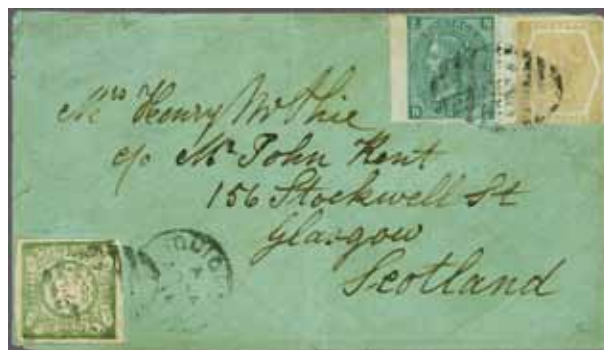 Mrs Henry McPhie
c/o Mr John Kent
156 Stockwell St
Glasgow
Scotland